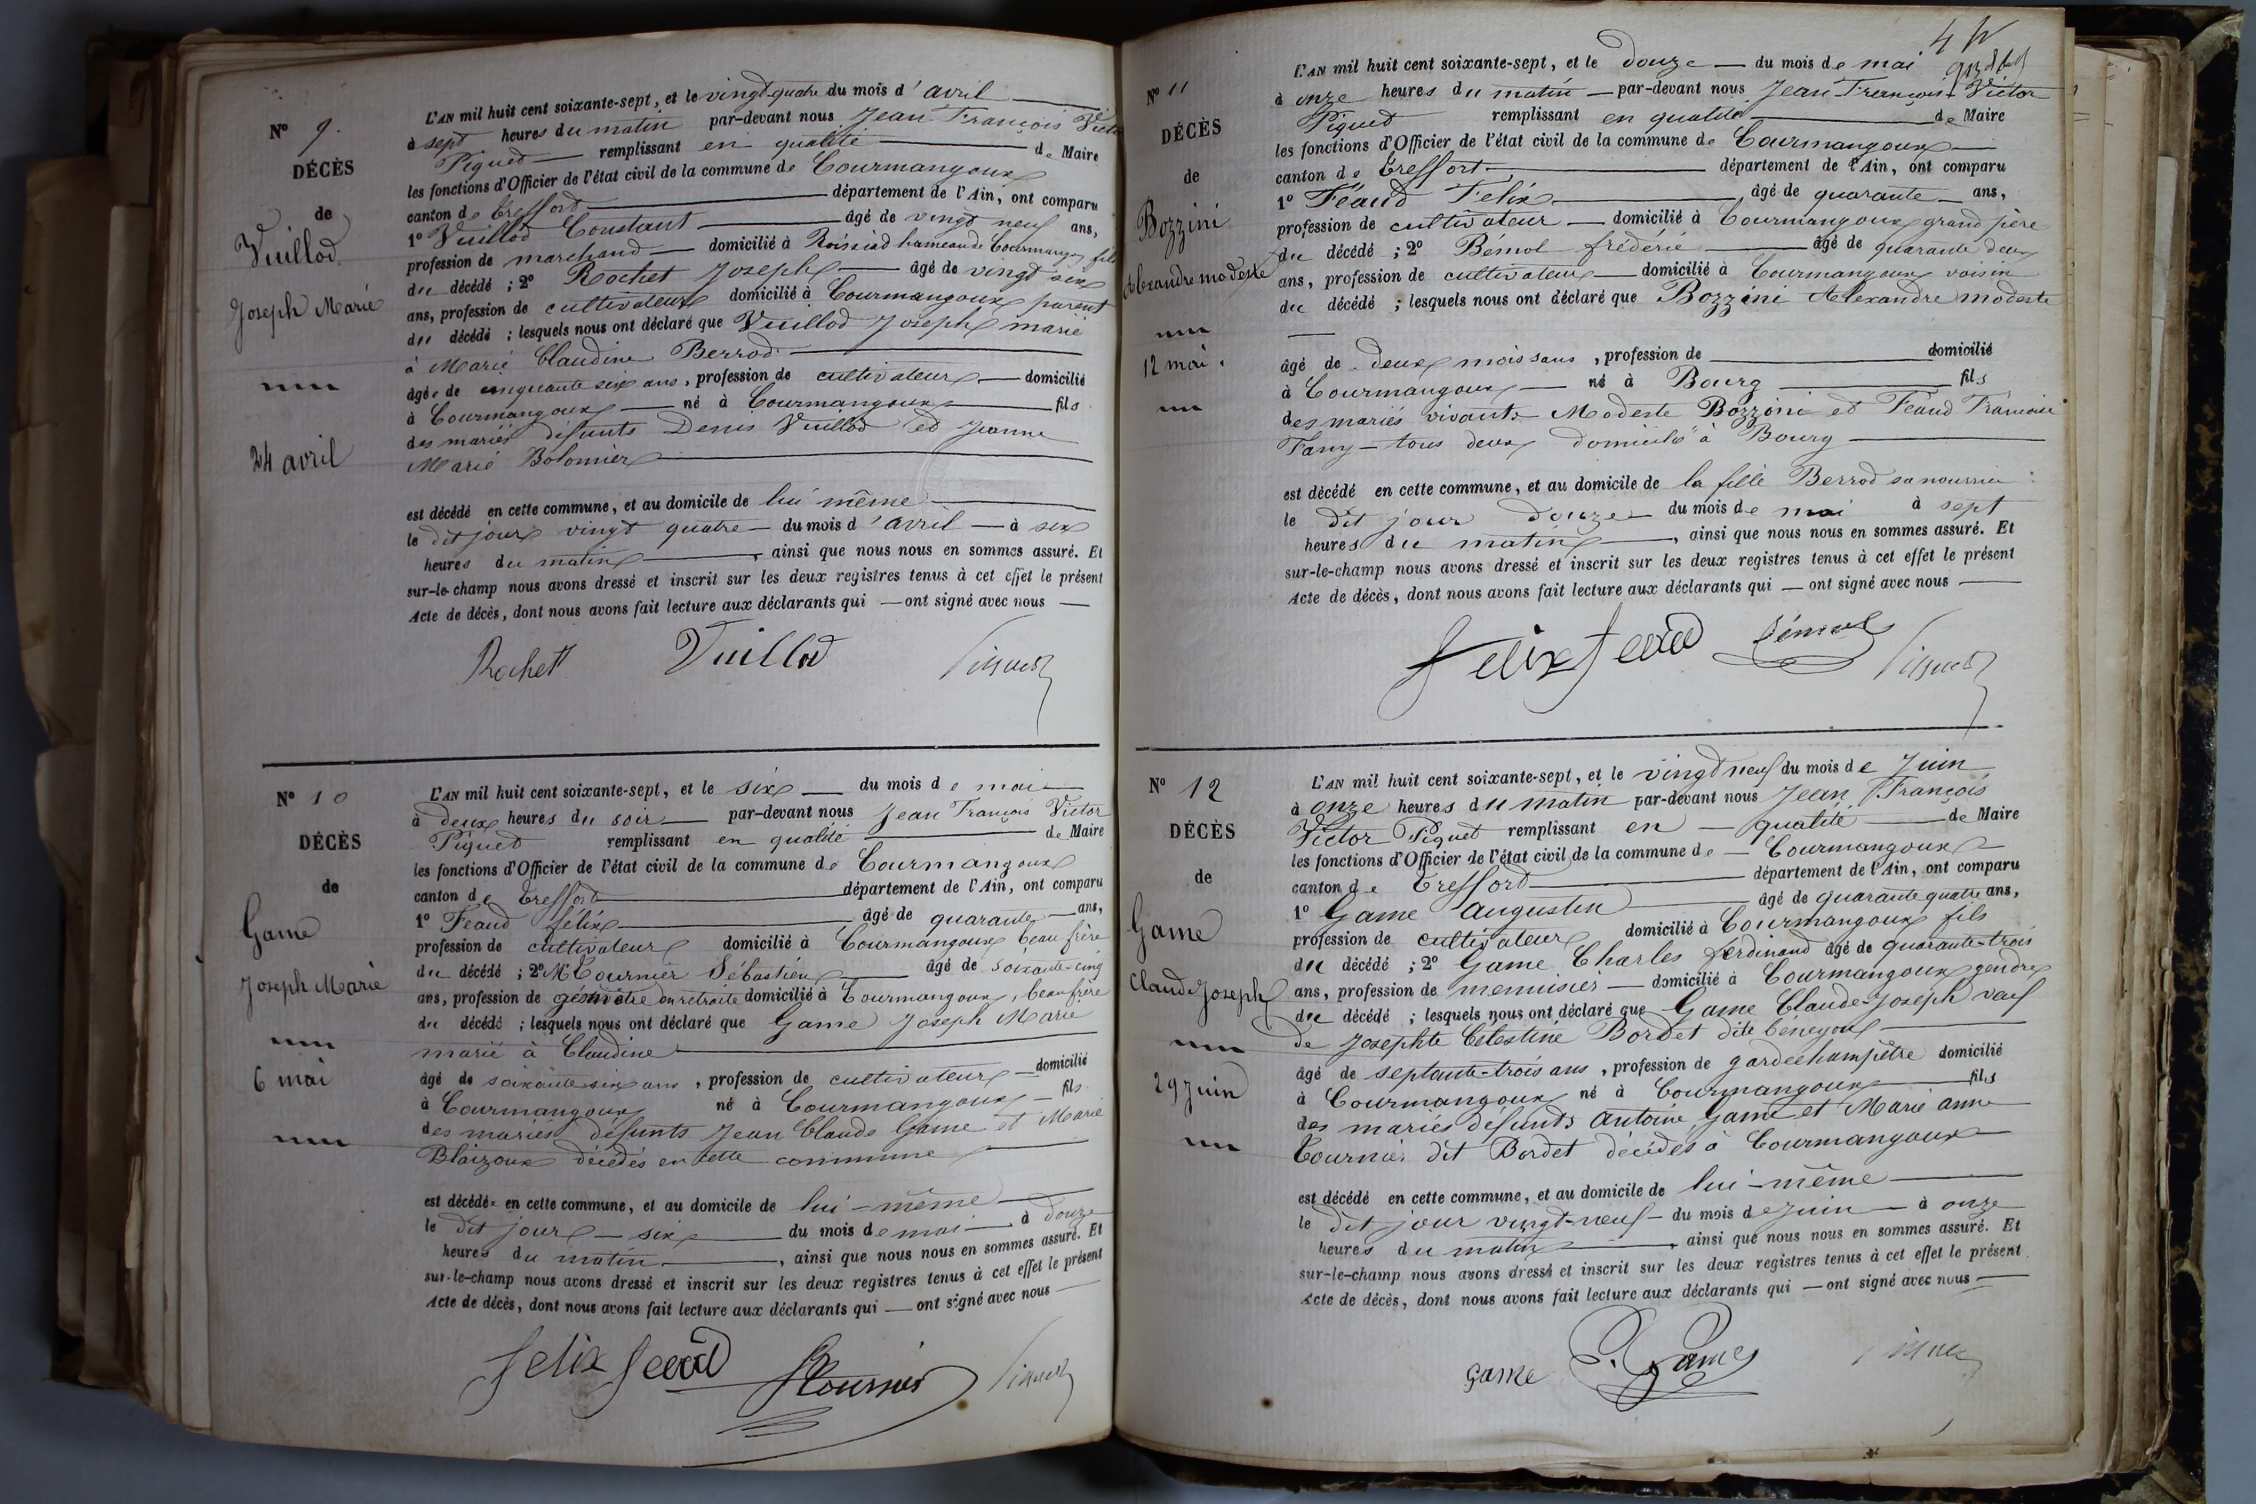 N° 9.
DÉCÈS
de
Vuillod
Joseph Marie
24 avril
L'AN mil huit cent soixante-sept, et le vingt-quatre du mois d'avril
à sept heures du matin par-devant nous Jean François Victor
Piquet remplissant en qualité de Maire
les fonctions d'Officier de l'état civil de la commune de Courmangoux
canton de Treffort département de l'Ain, ont comparu
1° Vuillod Constant âgé de vingt neuf ans,
profession de marchand domicilié à Roissiad hameau de Courmangoux fils
du décédé ; 2° Rochet Joseph âgé de vingt six
ans, profession de cultivateur domicilié à Courmangoux parent
du décédé ; lesquels nous ont déclaré que Vuillod Joseph marie
à Marie Claudine Berrod
âgé de cinquante six ans, profession de cultivateur domicilié
à Courmangoux né à Courmangoux fils
des mariés défunts Denis Vuillod et Jeanne
Marie Bolomier
est décédé en cette commune, et au domicile de lui même
le dit jour vingt quatre du mois d'avril à six
heures du matin, ainsi que nous nous en sommes assuré. Et
sur-le-champ nous avons dressé et inscrit sur les deux registres tenus à cet effet le présent
Acte de décès, dont nous avons fait lecture aux déclarants qui ont signé avec nous
Rochet Vuillod Piquet
N° 10
DÉCÈS
de
Game
Joseph Marie
6 mai
L'AN mil huit cent soixante-sept, et le six du mois de mai
à deux heures du soir par-devant nous Jean François Victor
Piquet remplissant en qualité de Maire
les fonctions d'Officier de l'état civil de la commune de Courmangoux
canton de Treffort département de l'Ain, ont comparu
1° Feaud félix âgé de quarante ans,
profession de cultivateur domicilié à Courmangoux beau frère
du décédé ; 2° Mr Cournier Sébastien âgé de soixante-cinq
ans, profession de géomètre en retraite domicilié à Courmangoux, beau frère
du décédé ; lesquels nous ont déclaré que Game Joseph Marie
marié à Claudine
âgé de soixante six ans, profession de cultivateur domicilié
à Courmangoux né à Courmangoux fils
des mariés défunts Jean Claude Game et Marie
Blaizoux décédés en cette commune
est décédé en cette commune, et au domicile de lui-même
le dit jour six du mois de mai à douze
heures du matin, ainsi que nous nous en sommes assuré. Et
sur-le-champ nous avons dressé et inscrit sur les deux registres tenus à cet effet le présent
Acte de décès, dont nous avons fait lecture aux déclarants qui ont signé avec nous
felix feaud Cournier Piquet
N° 11
DÉCÈS
de
Bozzini
Alexandre modeste
12 mai.
L'AN mil huit cent soixante-sept, et le douze du mois de mai
à onze heures du matin par-devant nous Jean François Victor
Piquet remplissant en qualité de Maire
les fonctions d'Officier de l'état civil de la commune de Courmangoux
canton de Treffort département de l'Ain, ont comparu
1° Féaud Felix âgé de quarante ans,
profession de cultivateur domicilié à Courmangoux grand père
du décédé ; 2° Bémol frédéric âgé de quarante deux
ans, profession de cultivateur domicilié à Courmangoux voisin
du décédé ; lesquels nous ont déclaré que Bozzini Alexandre modeste
âgé de deux mois sans, profession de domicilié
à Courmangoux né à Bourg fils
des mariés vivants Modeste Bozzini et Féaud Francoise
Fany tous deux domiciliés à Bourg
est décédé en cette commune, et au domicile de la fille Berrod sa nourrice
le dit jour douze du mois de mai à sept
heures du matin, ainsi que nous nous en sommes assuré. Et
sur-le-champ nous avons dressé et inscrit sur les deux registres tenus à cet effet le présent
Acte de décès, dont nous avons fait lecture aux déclarants qui ont signé avec nous
felix feaud Bémol Piquet
N° 12
DÉCÈS
de
Game
Claude Joseph
29 juin
L'AN mil huit cent soixante-sept, et le vingt neuf du mois de Juin
à onze heures du matin par-devant nous Jean François
Victor Piquet remplissant en qualité de Maire
les fonctions d'Officier de l'état civil de la commune de Courmangoux
canton de Treffort département de l'Ain, ont comparu
1° Game Augustin âgé de quarante quatre ans,
profession de cultivateur domicilié à Courmangoux fils
du décédé ; 2° Game Charles ferdinand âgé de quarante-trois
ans, profession de menuisier domicilié à Courmangoux gendre
du décédé ; lesquels nous ont déclaré que Game Claude-Joseph veuf
de Josephte Célestine Bordet dite
âgé de septante-trois ans, profession de garde champêtre domicilié
à Courmangoux né à Courmangoux fils
des mariés défunts Antoine Game et Marie anne
Cournier dit Bordet décédés à Courmangoux
est décédé en cette commune, et au domicile de lui-même
le dit jour vingt-neuf du mois de juin à onze
heures du matin, ainsi que nous nous en sommes assuré. Et
sur-le-champ nous avons dressé et inscrit sur les deux registres tenus à cet effet le présent
Acte de décès, dont nous avons fait lecture aux déclarants qui ont signé avec nous
game Game Piquet